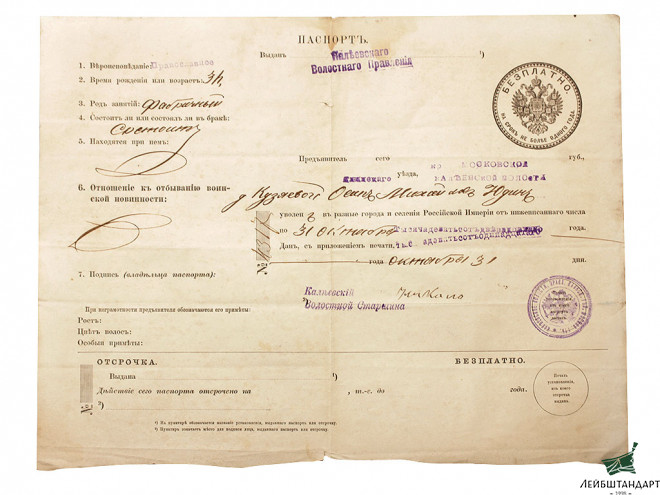 ПАСПОРТЪ.
Выданъ Калѣевскаго ¹)
Волостнаго Правленія
1. Вѣроисповѣданіе: Православное
2. Время рожденія или возрастъ: 34
3. Родъ занятій: Фабричный
4. Состоитъ ли или состоялъ ли въ бракѣ:
Состоитъ
5. Находятся при немъ:
БЕЗПЛАТНО.
НА СРОКЪ НЕ БОЛѢЕ ОДНОГО ГОДА.
Предъявитель сего МОСКОВСКОЙ губ.,
уѣзда, ВОЛОСТИ
6. Отношеніе къ отбыванію воин-
ской повинности:
д. Осипъ Михайловъ Юдинъ
уволенъ въ разные города и селенія Россійской Имперіи отъ нижеписаннаго числа
по 31 Октября года.
Данъ, съ приложеніемъ печати,
года октября 31 дня.
7. Подпись (владѣльца паспорта):
Калѣевскій
Волостной Старшина
При неграмотности предъявителя обозначаются его примѣты:
Ростъ:
Цвѣтъ волосъ:
Особыя примѣты:
ОТСРОЧКА. БЕЗПЛАТНО.
Выдана ¹)
Дѣйствіе сего паспорта отсрочено на , т.-е. до года.
²)
Печать
установленія,
изъ коего
отсрочка
выдана.
¹) Въ пунктирѣ обозначается названіе установленія, выдавшаго паспортъ или отсрочку.
²) Пунктиръ означаетъ мѣсто для подписи лица, выдавшаго паспортъ или отсрочку.
ЛЕЙБШТАНДАРТ
1998